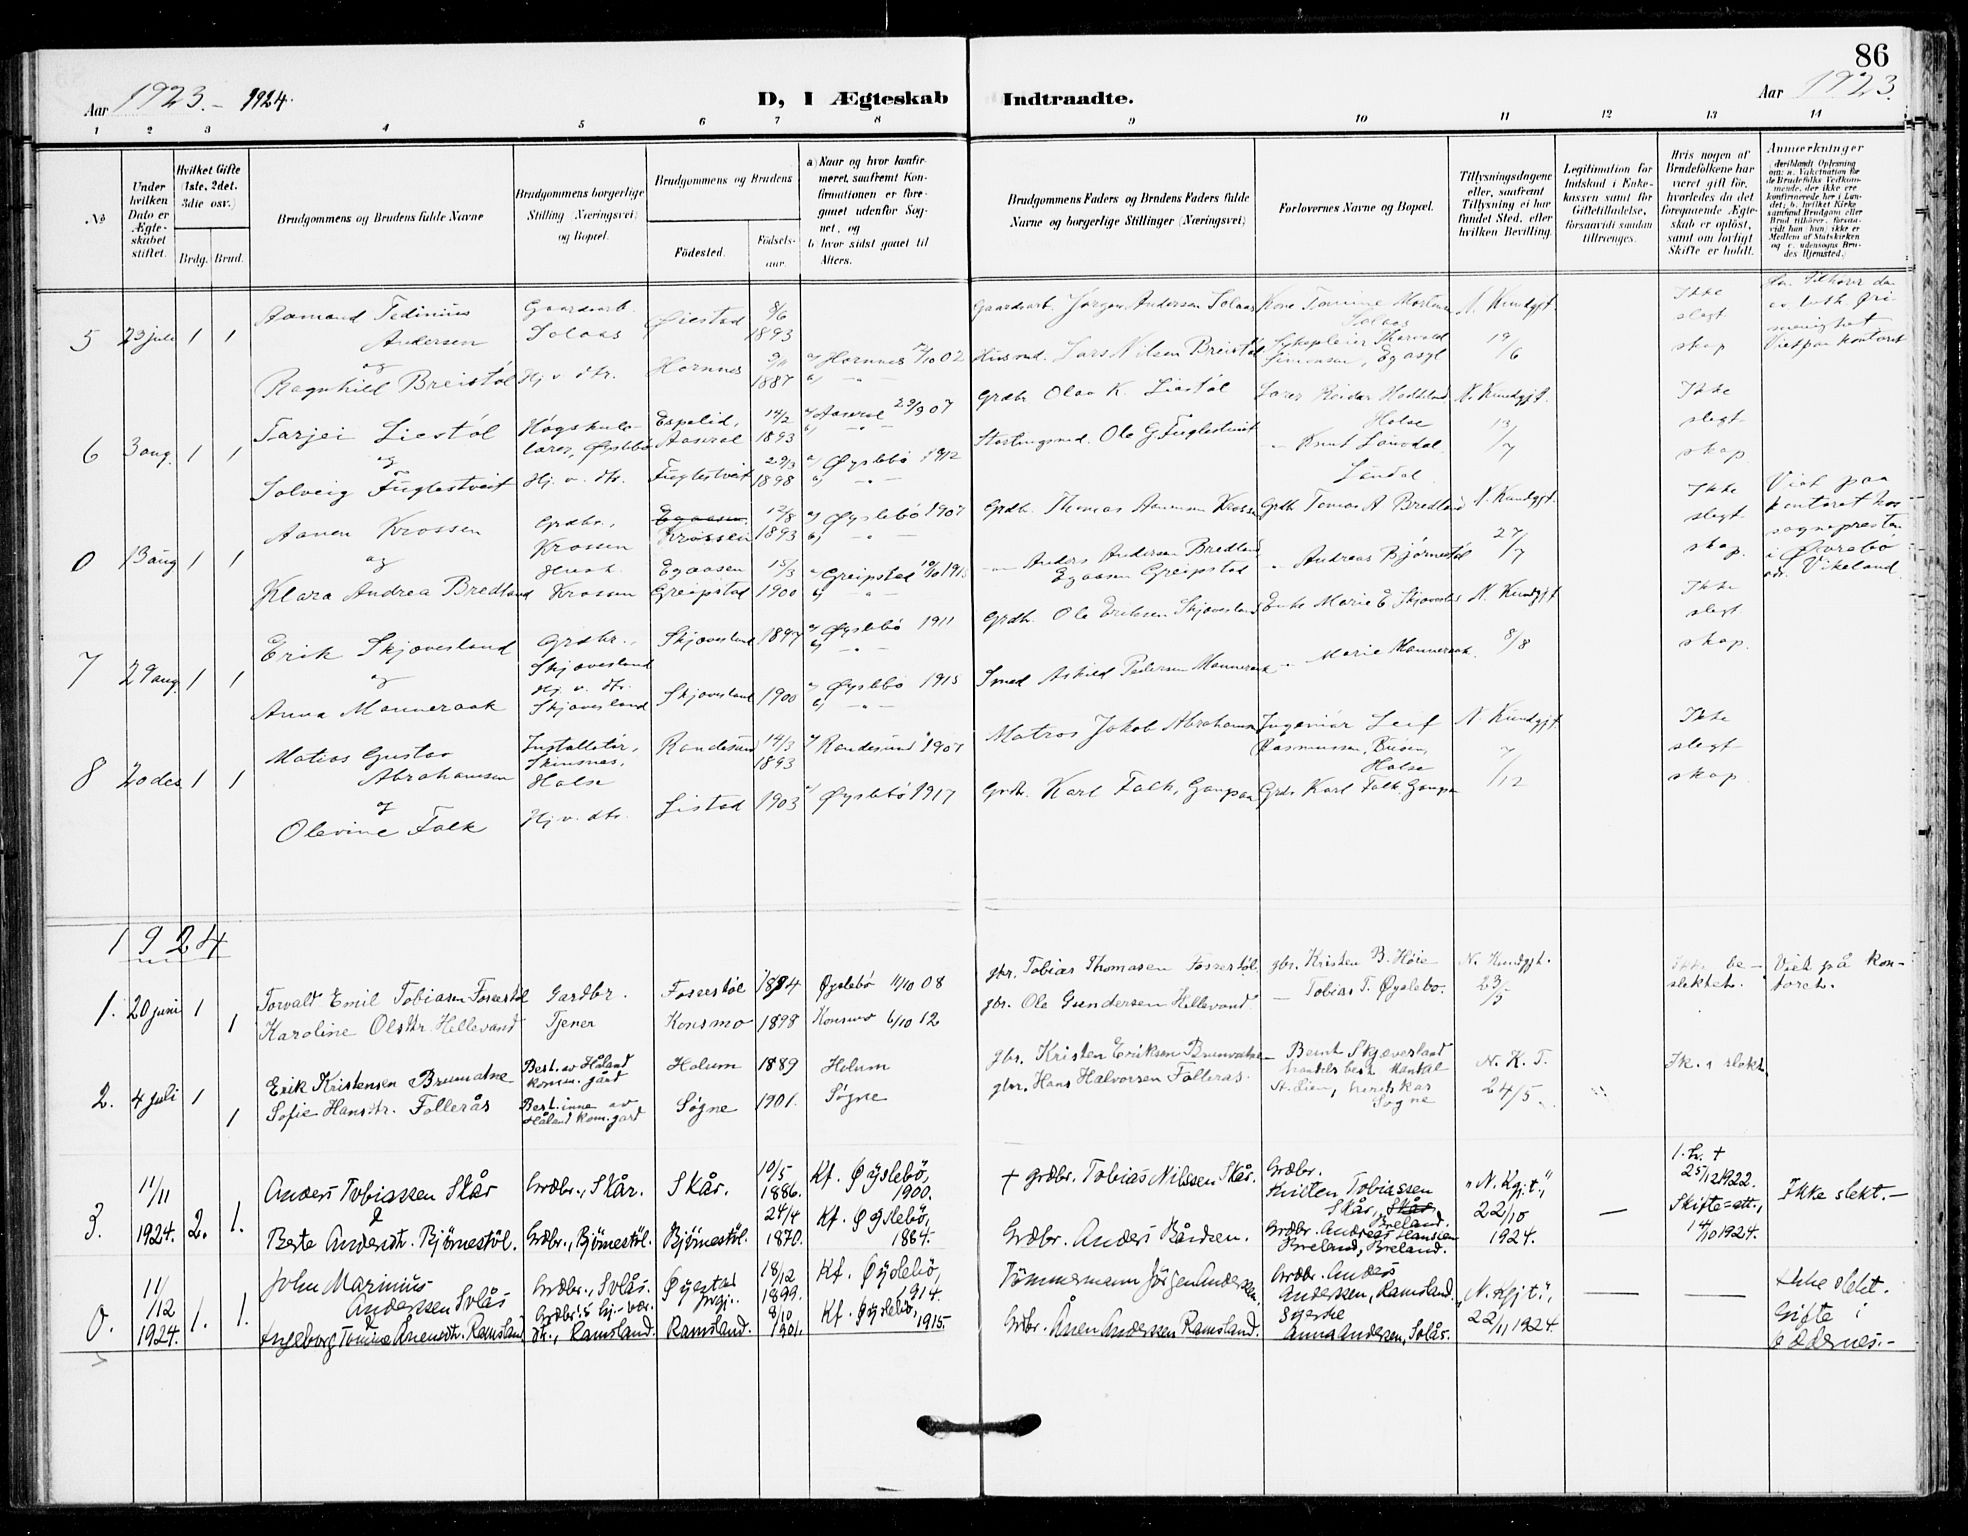 86
Aar 1923. – 1924.
D, I Ægteskab Indtraadte.
Aar 1923.
1 2 3 4 5 6 7 8 9 10 11 12 13 14
No
Under hvilken Dato er Ægteskabet stiftet.
Hvilket Gifte (1ste, 2det, 3die osv.)
Brdg. Brud.
Brudgommens og Brudens fulde Navne
Brudgommens borgerlige Stilling (Næringsvei) og Bopæl.
Brudgommens og Brudens
Födested.
Födselsaar.
a) Naar og hvor konfirmeret, saafremt Konfirmationen er foregaaet udenfor Sognet, og
b) hvor sidst gaaet til Alters.
Brudgommens Faders og Brudens Faders fulde Navne og borgerlige Stillinger (Næringsvei)
Forlovernes Navne og Bopæl.
Tillysningsdagene eller, saafremt Tillysning ei har fundet Sted, efter hvilken Bevilling.
Legitimation for Indskud i Enkekassen samt for Giftetilladelse, forsaavidt saadan tiltrænges.
Hvis nogen af Brudefolkene har været gift för, hvorledes da det foregaaende Ægteskab er oplöst, samt om lovligt Skifte er holdt.
Anmærkninger
5 23 juli 1 1
Aamund Tedinius Andersen
og
Ragnhild Breistöl
Gaardarb. Solaas
Hj. v. dtr.
Øiestad 8/6 1893
Hornnes 9/11 1887
a) Hornnes 02
Gaardarb. Jørgen Andersen Solaas
Husmd. Lars Nilsen Breistöl
Kone Tomine Mortensen Solaas
Sykepleier Thorvald Simonsen, Eg asyl
N. Kundgjt. 19/6
Ikke slegtskap
Viet paa kontoret
6 3 aug. 1 1
Tarjei Liestöl
og
Solveig Fuglestveit
Høgskulelærer, Øyslebø
Hj. v. dtr.
Espelid, Aaseral 14/2 1893
Fuglestveit 29/3 1898
a) Aaseral 29/9 07
a) Øyslebö 1912
Grdbr. Olav K. Liestöl
Stortingsmd. Ole G Fuglestveit
Lærer Reidar Haddeland Halse
– Knut Løvdal
N. Kundgjt. 13/7
Ikke slegtskap
0 13 aug 1 1
Aanen Krossen
og
Klara Andrea Bredland
Grdbr., Krossen
Hush. Krossen
Egaasen Krossen 12/8 1893
Egaasen Greipstad 15/3 1900
a) Øyslebö 1907
a) Greipstad 1915
Grdbr. Thomas Aanensen Krossen
– Anders Andersen Bredland Egaasen Greipstad
Grdbr. Tomas A Bredland
" Andreas Bjørnestöl
N. Kundgjt. 27/7
Ikke slegtskap.
Viet paa kontoret hos sognepresten i Øvrebö adr. Vikeland.
7 29 aug. 1 1
Erik Skjævesland
og
Anna Manneraak
Grdbr., Skjævesland
Hj. v. dtr. Skjævesland
Skjævesland 1897
Skjævesland 1900
a) Øyslebö 1911
a) Øyslebö 1915
Grdbr. Ole Eriksen Skjævesland
Smed Askild Pedersen Manneraak
Enke Marie E Skjævesland
" Marie Manneraak
N. Kundgjt 8/8
Ikke slegtskap.
8 20 des. 1 1
Matias Gustav Abrahamsen
og
Olevine Falk
Installatör, Skinsnes, Halse
Hj. v. dtr.
Randesund 14/3 1893
Listad 1903
a) Randesund 1907
a) Øyslebö 1917
Matros Jakob Abrahamsen
Grdbr. Karl Falk, Gangsaa
Ingeniør Leif Rasmussen, Halse
Grdb. Karl Falk, Gangsaa
N. Kundgjt. 7/12
Ikke slegtskap
1924
1. 20 juni 1 1
Torvald Emil Tobiassen Fosserstøl
Karoline Olsdtr. Hellevand
Gardbr.
Tjener
Fosserstøl 1894
Konsmo 1898
Øyslebø 11/10 08
Konsmo 6/10 12
gbr. Tobias Thomassen Fosserstøl
gbr. Ole Gundersen Hellevand
gbr. Kristen B. Høie
— Tobias T. Øyslebø.
N. Kundgjt. 23/5
Ikke beslektet.
Viet på kontoret.
2. 4 juli 1 1
Erik Kristensen Brunvatne
Sofie Hansdtr. Follerås
Best. av Håland komm. gard
Best.inne av Håland kom. gard
Holum 1889
Søgne 1901.
Holum
Søgne
gbr. Kristen Eriksen Brunvatne
gbr. Hans Halvorsen Follerås.
— Bernt Skjævesland
handelsbest. Mandal
Søgne
N. K. T. 24/5
Ik. i slekt
3. 11/11 1924. 2. 1.
Anders Tobiassen Skår
&
Berte Andersdtr. Bjørnestöl.
Grdbr., Skår.
Grdbr., Bjørnestöl.
Skår. 10/5 1886.
Bjørnestöl. 24/4 1870.
Kf. Øyslebö, 1900.
Kf. Øyslebö, 1884.
+ Grdbr. Tobias Nilssen Skår.
Grdbr. Anders Bårdsen.
Grdbr. Kristen Tobiassen Skår, Skår Breland.
Grdbr. Andreas Hanssen Breland, Breland.
"N. Kgj.t.", 22/10 1924.
—
1. h. + 25/12 1922. Skifte=att., 14/10 1924.
Ikke slekt.—
0. 11/12 1924. 1. 1.
John Marinius Anderssen Solås
&
Ingeborg Tomine Ånensdtr. Ramsland
Grdbr., Solås.
Grdbr's hj.-vær. dt., Ramsland.
Øyestad 18/12 1899.
Ramsland. 8/10 1901.
Kf. Øyslebö, 1914.
Kf. Øyslebö, 1915.
Tömmermann Jörgen Anderssen.
Grdbr. Ånen Anderssen Ramsland.
Grdbr. Anders Anderssen, Ramsland.
Syerske Anna Andersen, Solås.
"N. Kgj.t.", 22/11 1924.
—
—
Ikke slekt. Gifte i